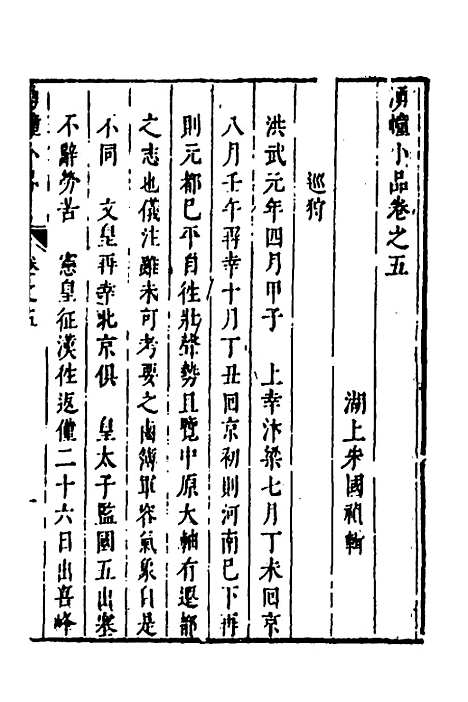 湧幢小品卷之五
湖上朱國禎輯
巡狩
洪武元年四月甲子　上幸汴梁七月丁未回京
八月壬午再幸十月丁丑回京初則河南已下再
則元都已平自徃壯聲勢且覽中原大軸有遷都
之志也儀注雖未可考要之鹵簿軍容氣象自是
不同　文皇再幸北京俱　皇太子監國五出塞
不辭勞苦　憲皇征漢徃返僅二十六日出喜峰
湧幢小品　卷之五　一